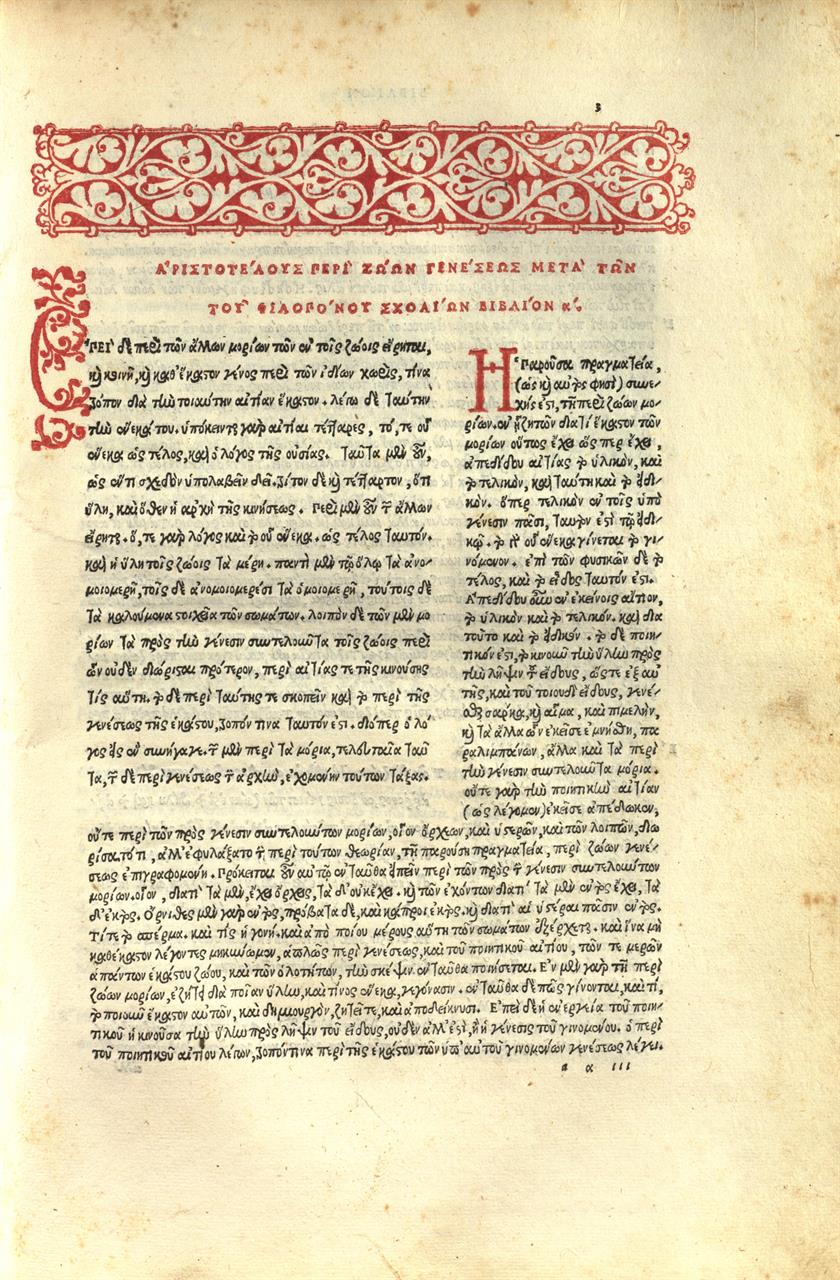 3
ἈΡΙΣΤΟΤΈΛΟΥΣ ΠΕΡῚ ΖΏΩΝ ΓΕΝΈΣΕΩΣ ΜΕΤᾺ ΤΩ͂Ν
ΤΟΥ͂ ΦΙΛΟΠΌΝΟΥ ΣΧΟΛΊΩΝ ΒΙΒΛΊΟΝ α´.
ἘΠΕῚ δὲ περὶ τῶν ἄλλων μορίων τῶν ἐν τοῖς ζώοις εἴρηται,
ϗ κοινῆ, ϗ καθ' ἕκαστον γένος περὶ τῶν ἰδίων χωρὶς, τίνα
τρόπον διὰ τὴν τοιαύτην αἰτίαν ἕκαστον. λέγω δὲ ταύτην
τὴν ἕνεκά του. ὑπόκεινται γὰρ αἰτίαι τέτταρες, τό, τε οὗ
ἕνεκα ὡς τέλος, καὶ ὁ λόγος τῆς οὐσίας. ταῦτα μὲν οὖν,
ὡς ἕν τι σχεδὸν ὑπολαβεῖν δεῖ. τρίτον δὲ ϗ τέταρτον, ὅτι
ὕλη, καὶ ὅθεν ἡ ἀρχὴ τῆς κινήσεως. Περὶ μὲν οὖν τῶν ἄλλων
εἴρηται. ὅ, τε γὰρ λόγος καὶ τὸ οὗ ἕνεκα. ὡς τέλος ταυτόν.
καὶ ἡ ὕλη τοῖς ζώοις τὰ μέρη. παντὶ μὲν τῷ ὅλῳ τὰ ἀνο-
μοιομερῆ, τοῖς δὲ ἀνομοιομερέσι τὰ ὁμοιομερῆ, τούτοις δὲ
τὰ καλούμενα στοιχεῖα τῶν σωμάτων. λοιπὸν δὲ τῶν μὲν μο
ρίων τὰ πρὸς τὴν γένεσιν συντελοῦντα τοῖς ζώοις περὶ
ὧν οὐδὲν διώρισται πρότερον, περὶ αἰτίας τε τῆς κινούσης
τίς αὕτη. τὸ δὲ περὶ ταύτης τε σκοπεῖν καὶ τὸ περὶ τῆς
γενέσεως τῆς ἑκάστου, τρόπον τινα ταυτόν ἐστι. διόπερ ὁ λό
γος εἰς ἓν συνήγαγε. τῶν μὲν περὶ τὰ μόρια, τελευταῖα ταῦ
τα, τῶν δὲ περὶ γενέσεως τὴν ἀρχὴν, ἐχομένην τούτων τάξας.
Ἡ Παροῦσα πραγματεία,
(ὡς ϗ αὐτός φησι) συνε-
χής ἐστι, τῇ περὶ ζώων μο-
ρίων. ἐν ᾗ ζητῶν διατί ἕκαστον τῶν
μορίων οὕτως ἔχει ὥσπερ ἔχει,
ἀπεδίδου αἰτίας τὸ ὑλικὸν, καὶ
τὸ τελικὸν, καὶ ταύτῃ καὶ τὸ εἰδι-
κόν. ὅπερ τελικὸν ἐν τοῖς ὑπὸ
γένεσιν πᾶσι, ταυτὸν ἐστὶ τῷ εἰδι-
κῷ. τὸ γὰρ οὗ ἕνεκα γίνεται τὸ γι-
νόμενον. ἐπὶ τῶν φυσικῶν δὲ τὸ
τέλος, καὶ τὸ εἶδος ταυτόν ἐστι.
Ἀπεδίδου οὖν ἐν ἐκείνοις αἴτιον,
τὸ ὑλικὸν καὶ τὸ τελικόν. καὶ διὰ
τοῦτο καὶ τὸ εἰδικόν. τὸ δὲ ποιη-
τικόν ἐστι, τὸ κινοῦν τὴν ὕλην πρὸς
τὴν λῆψιν τοῦ εἴδους, ὥστε ἐξ αὐ
τῆς, καὶ τοῦ τοιοῦδε εἴδους, γενέ-
σθαι σάρκα, ϗ αἷμα, καὶ πιμελὴν,
ϗ τὰ ἄλλα ὧν ἐκεῖσε ἐμνήσθη, πα
ραλιμπάνων, ἀλλὰ καὶ τὰ περὶ
τὴν γένεσιν συντελοῦντα μόρια.
οὔτε γὰρ τὴν ποιητικὴν αἰτίαν
(ὡς λέγομεν) ἐκεῖσε ἀπέδωκεν,
οὔτε περὶ τῶν πρὸς γένεσιν συντελούντων μορίων, οἷον ὄρχεων, καὶ ὑστερῶν, καὶ τῶν λοιπῶν, διω
ρίσατό τι, ἀλλ' ἐφυλάξατο τὴν περὶ τούτων θεωρίαν, τῇ παρούσῃ πραγματεία, περὶ ζώων γενέ-
σεως ἐπιγραφομένῃ. Πρόκειται οὖν αὐτῷ ἐνταῦθα εἰπεῖν περὶ τῶν πρὸς τὴν γένεσιν συντελούντων
μορίων. οἷον, διατὶ τὰ μὲν, ἔχει ὄρχεις, τὰ δ' οὐκ ἔχει. ϗ τῶν ἐχόντων διατὶ τὰ μὲν ἐντὸς ἔχει, τὰ
δ' ἐκτός. Ὄρνιθες μὲν γὰρ ἐντὸς, πρόβατα δὲ, καὶ κάπροι ἐκτός. ϗ διατὶ αἱ ὑστέραι πᾶσιν ἐντός.
Τί τε τὸ σπέρμα. καὶ τίς ἡ γονή. καὶ ἀπὸ ποίου μέρους αὐτῇ τῶν σωμάτων ἐξέρχεται. καὶ ἵνα μὴ
καθέκαστον λέγοντες μηκύνωμεν, ἁπλῶς περὶ γενέσεως, καὶ τοῦ ποιητικοῦ αἰτίου, τῶν τε μερῶν
ἁπάντων ἑκάστου ζώου, καὶ τῶν ὁλοτήτων, τὴν σκέψιν ἐνταῦθα ποιήσεται. Ἐν μὲν γὰρ τῇ περὶ
ζώων μορίων, ἐζήτει διὰ ποῖαν ὕλην, καὶ τίνος ἕνεκα, γεγόνασιν. ἐνταῦθα δὲ πῶς γίνονται, καὶ τί,
τὸ ποιοῦν ἕκαστον αὐτῶν, καὶ δημιουργὸν, ζητεῖ τε, καὶ ἀποδείκνυσι. Ἐπεὶ δὲ ἡ ἐνέργεια τοῦ ποιη-
τικοῦ ἡ κινοῦσα τὴν ὕλην πρὸς λῆψιν τοῦ εἴδους, οὐδὲν ἄλλ' ἐστὶ, ἢ ἡ γένεσις τοῦ γινομένου. ὁ περὶ
τοῦ ποιητικοῦ αἰτίου λέγων, τρόπον τινα περὶ τῆς ἑκάστου τῶν ὑπ' αὐτοῦ γινομένων γενέσεως λέγει.
a α iii